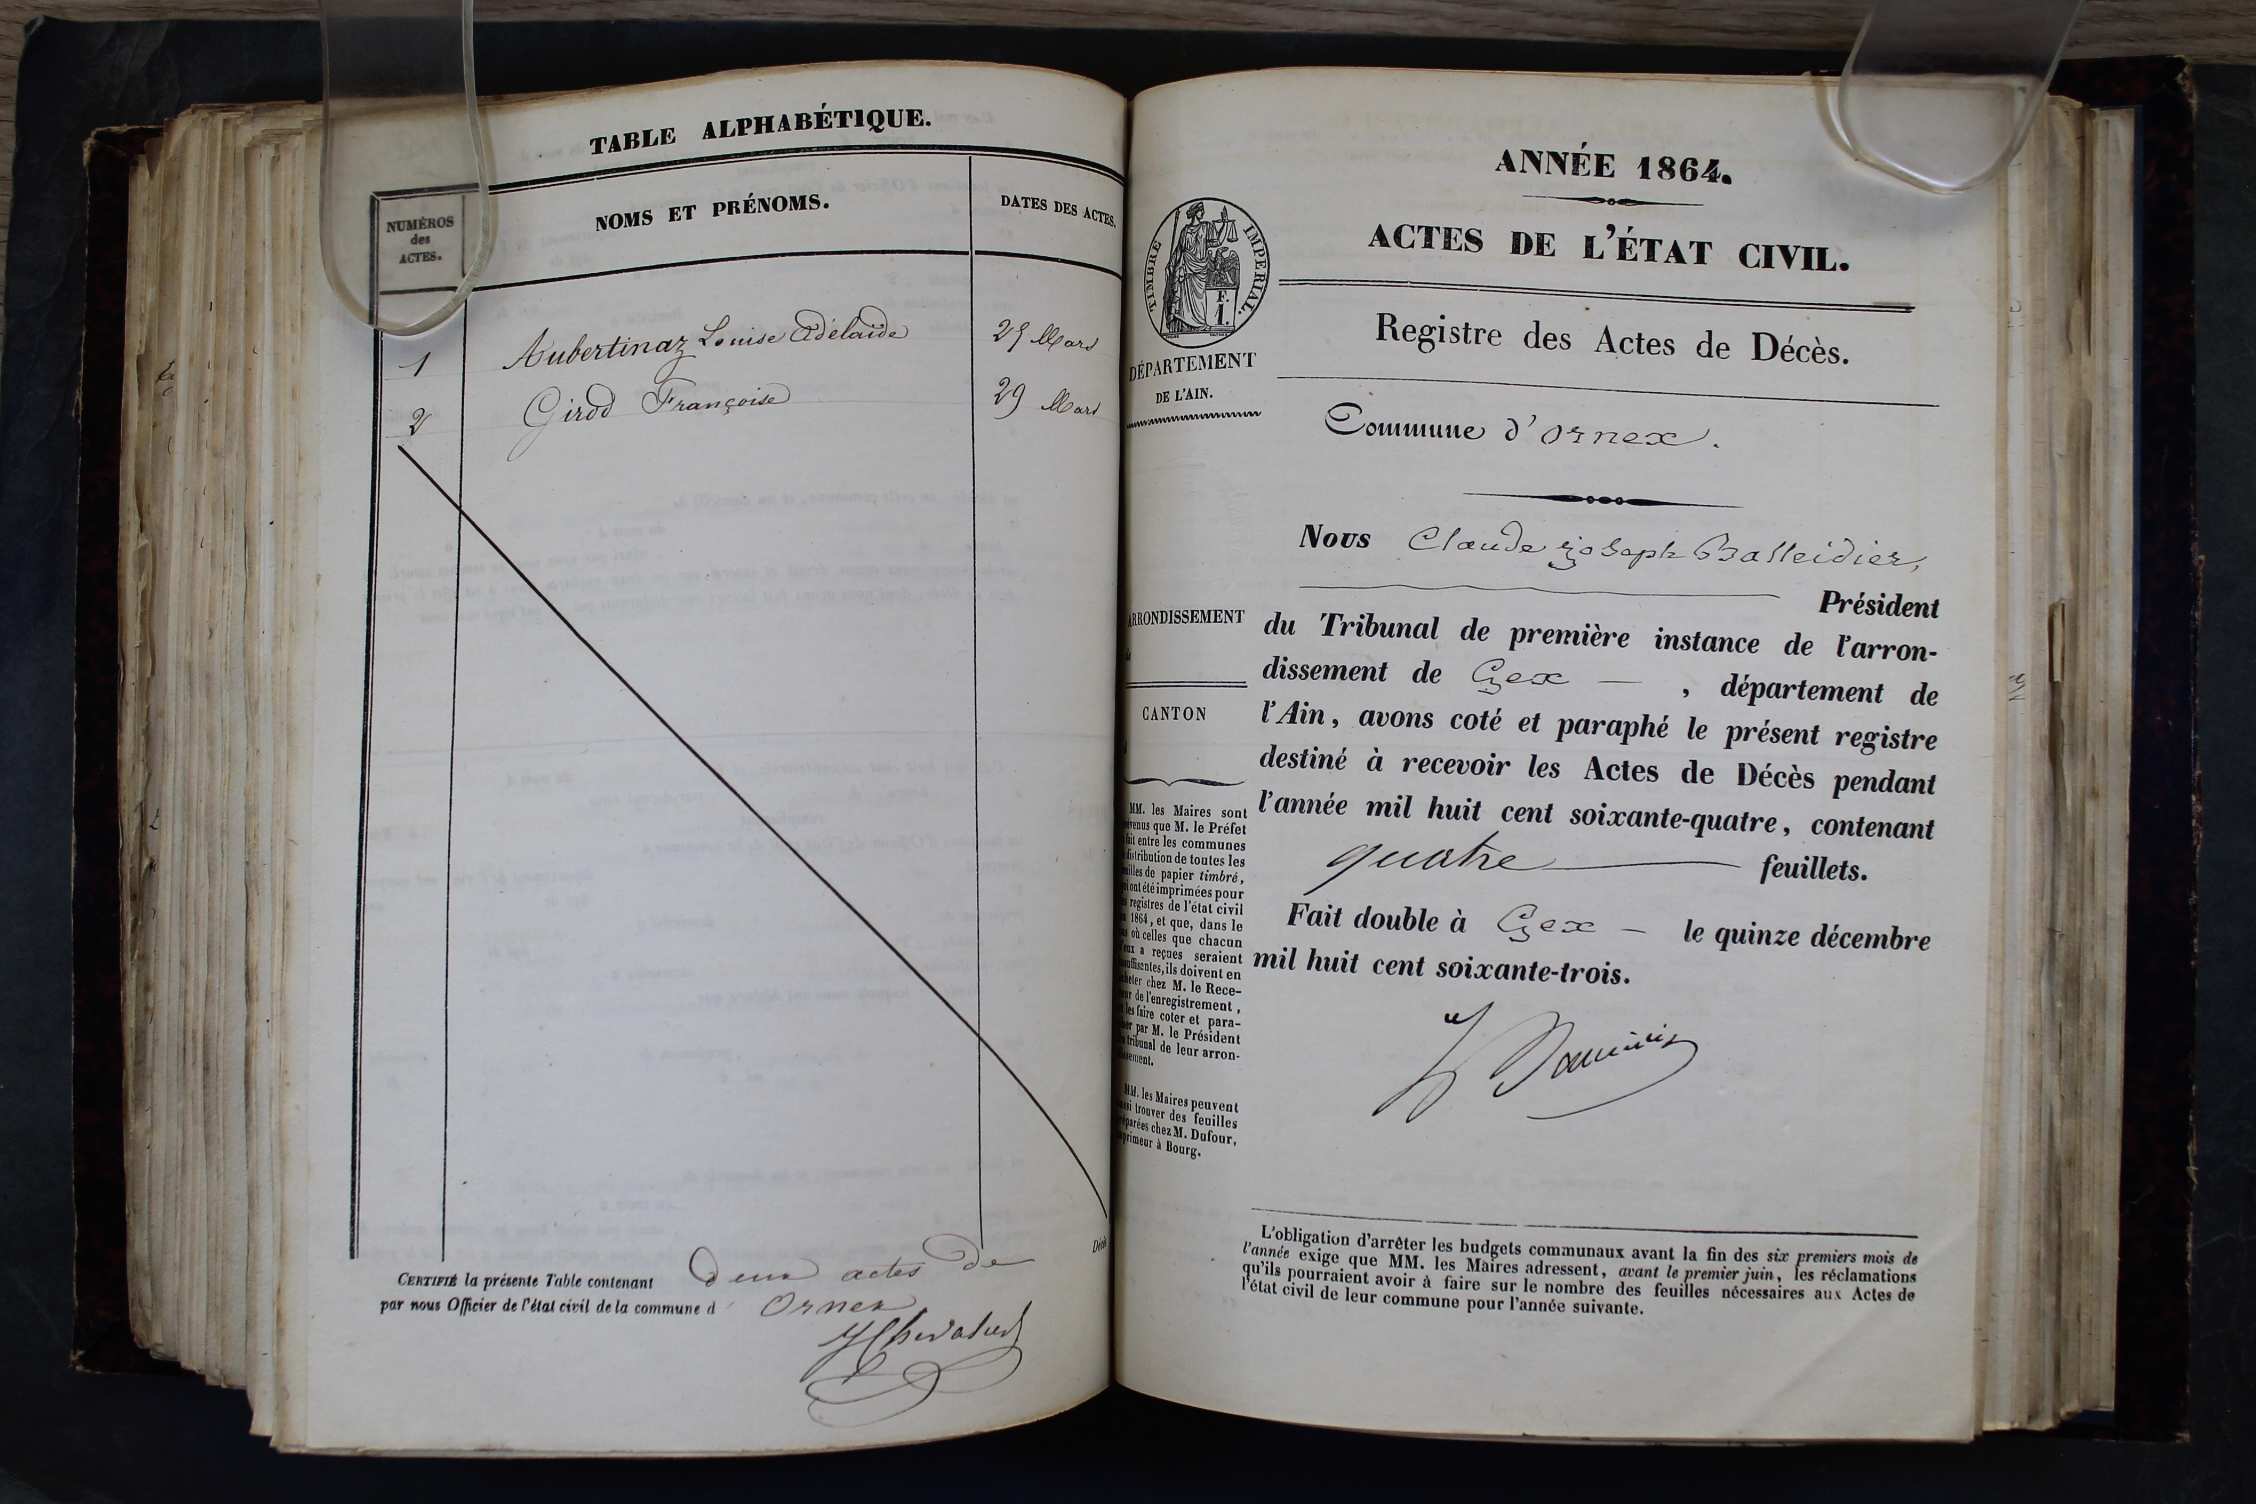 TABLE ALPHABÉTIQUE.
NUMÉROS
des
ACTES.
NOMS ET PRÉNOMS.
DATES DES ACTES.
1 Aubertinaz Louise Adélaïde 25 Mars
2 Girod Françoise 29 Mars
Décès
CERTIFIÉ la présente Table contenant deux actes de
par nous Officier de l'état civil de la commune d' Ornex
ANNÉE 1864.
ACTES DE L'ÉTAT CIVIL.
TIMBRE IMPERIAL.
F.
1.
DÉPARTEMENT
DE L'AIN.
Registre des Actes de Décès.
Commune d'Ornex.
Nous Claude Joseph Balleidier,
Président
du Tribunal de première instance de l'arron-
dissement de Gex — , département de
l'Ain, avons coté et paraphé le présent registre
destiné à recevoir les Actes de Décès pendant
l'année mil huit cent soixante-quatre, contenant
quatre feuillets.
Fait double à Gex — le quinze décembre
mil huit cent soixante-trois.
ARRONDISSEMENT
CANTON
MM. les Maires sont
venus que M. le Préfet
fait entre les communes
distribution de toutes les
illes de papier timbré,
i ont été imprimées pour
registres de l'état civil
1864, et que, dans le
où celles que chacun
eux a reçues seraient
suffisantes, ils doivent en
heter chez M. le Rece-
ur de l'enregistrement,
les faire coter et para-
er par M. le Président
tribunal de leur arron-
issement.
MM. les Maires peuvent
ssi trouver des feuilles
éparées chez M. Dufour,
primeur à Bourg.
L'obligation d'arrêter les budgets communaux avant la fin des six premiers mois de
l'année exige que MM. les Maires adressent, avant le premier juin, les réclamations
qu'ils pourraient avoir à faire sur le nombre des feuilles nécessaires aux Actes de
l'état civil de leur commune pour l'année suivante.